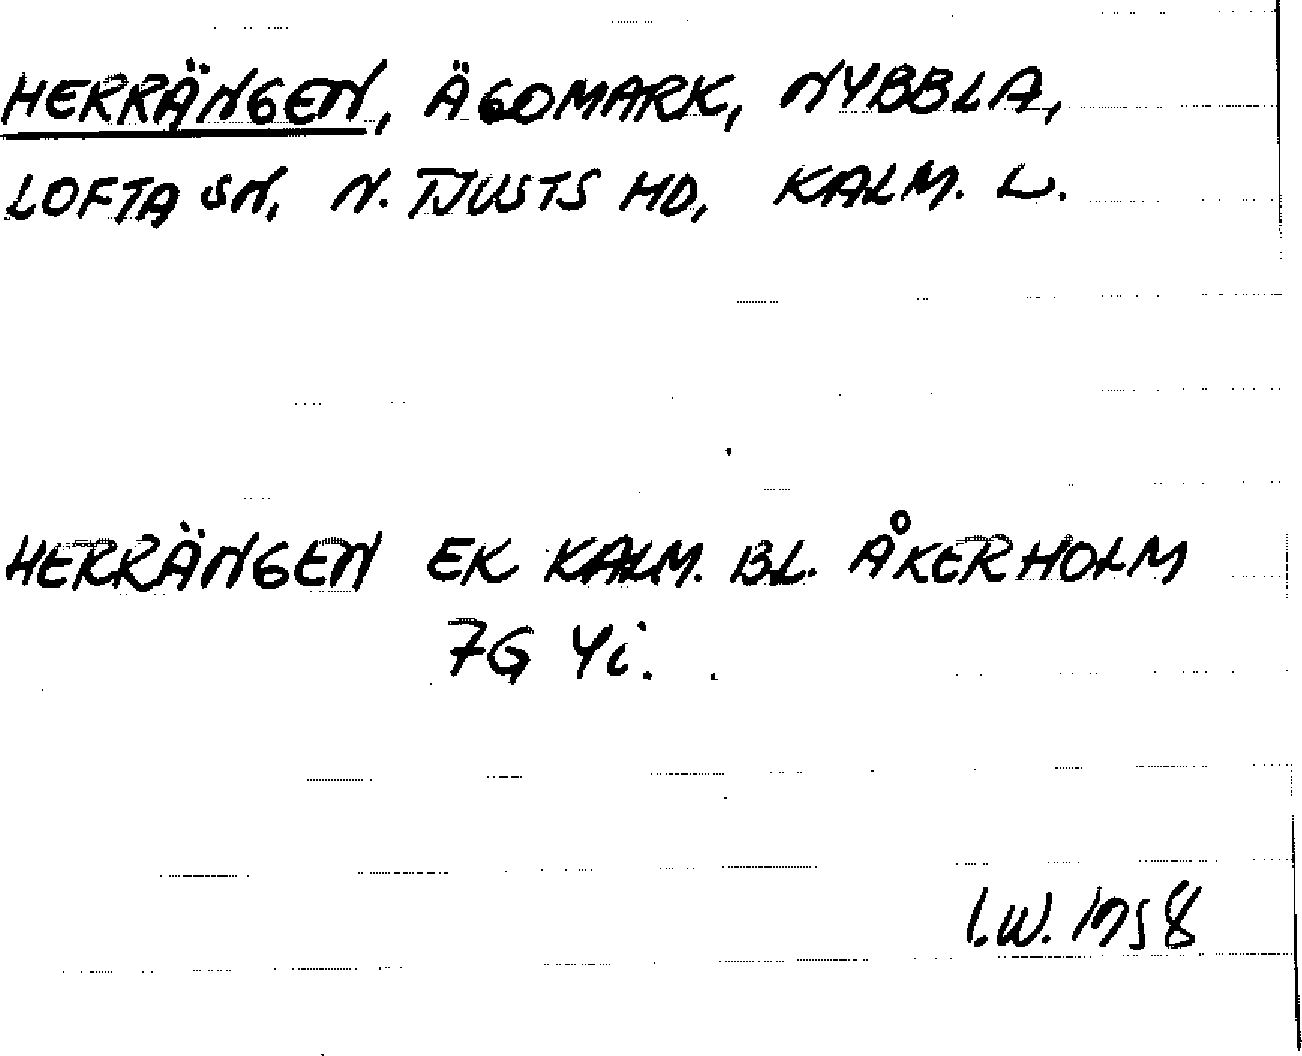 HERRÄNGEN, ÄGOMARK, NYBBLA,
LOFTA SN, N. TJUSTS HD, KALM. L.
HERRÄNGEN EK KALM. BL. ÅKERHOLM
7G 4i.
I.W. 1958